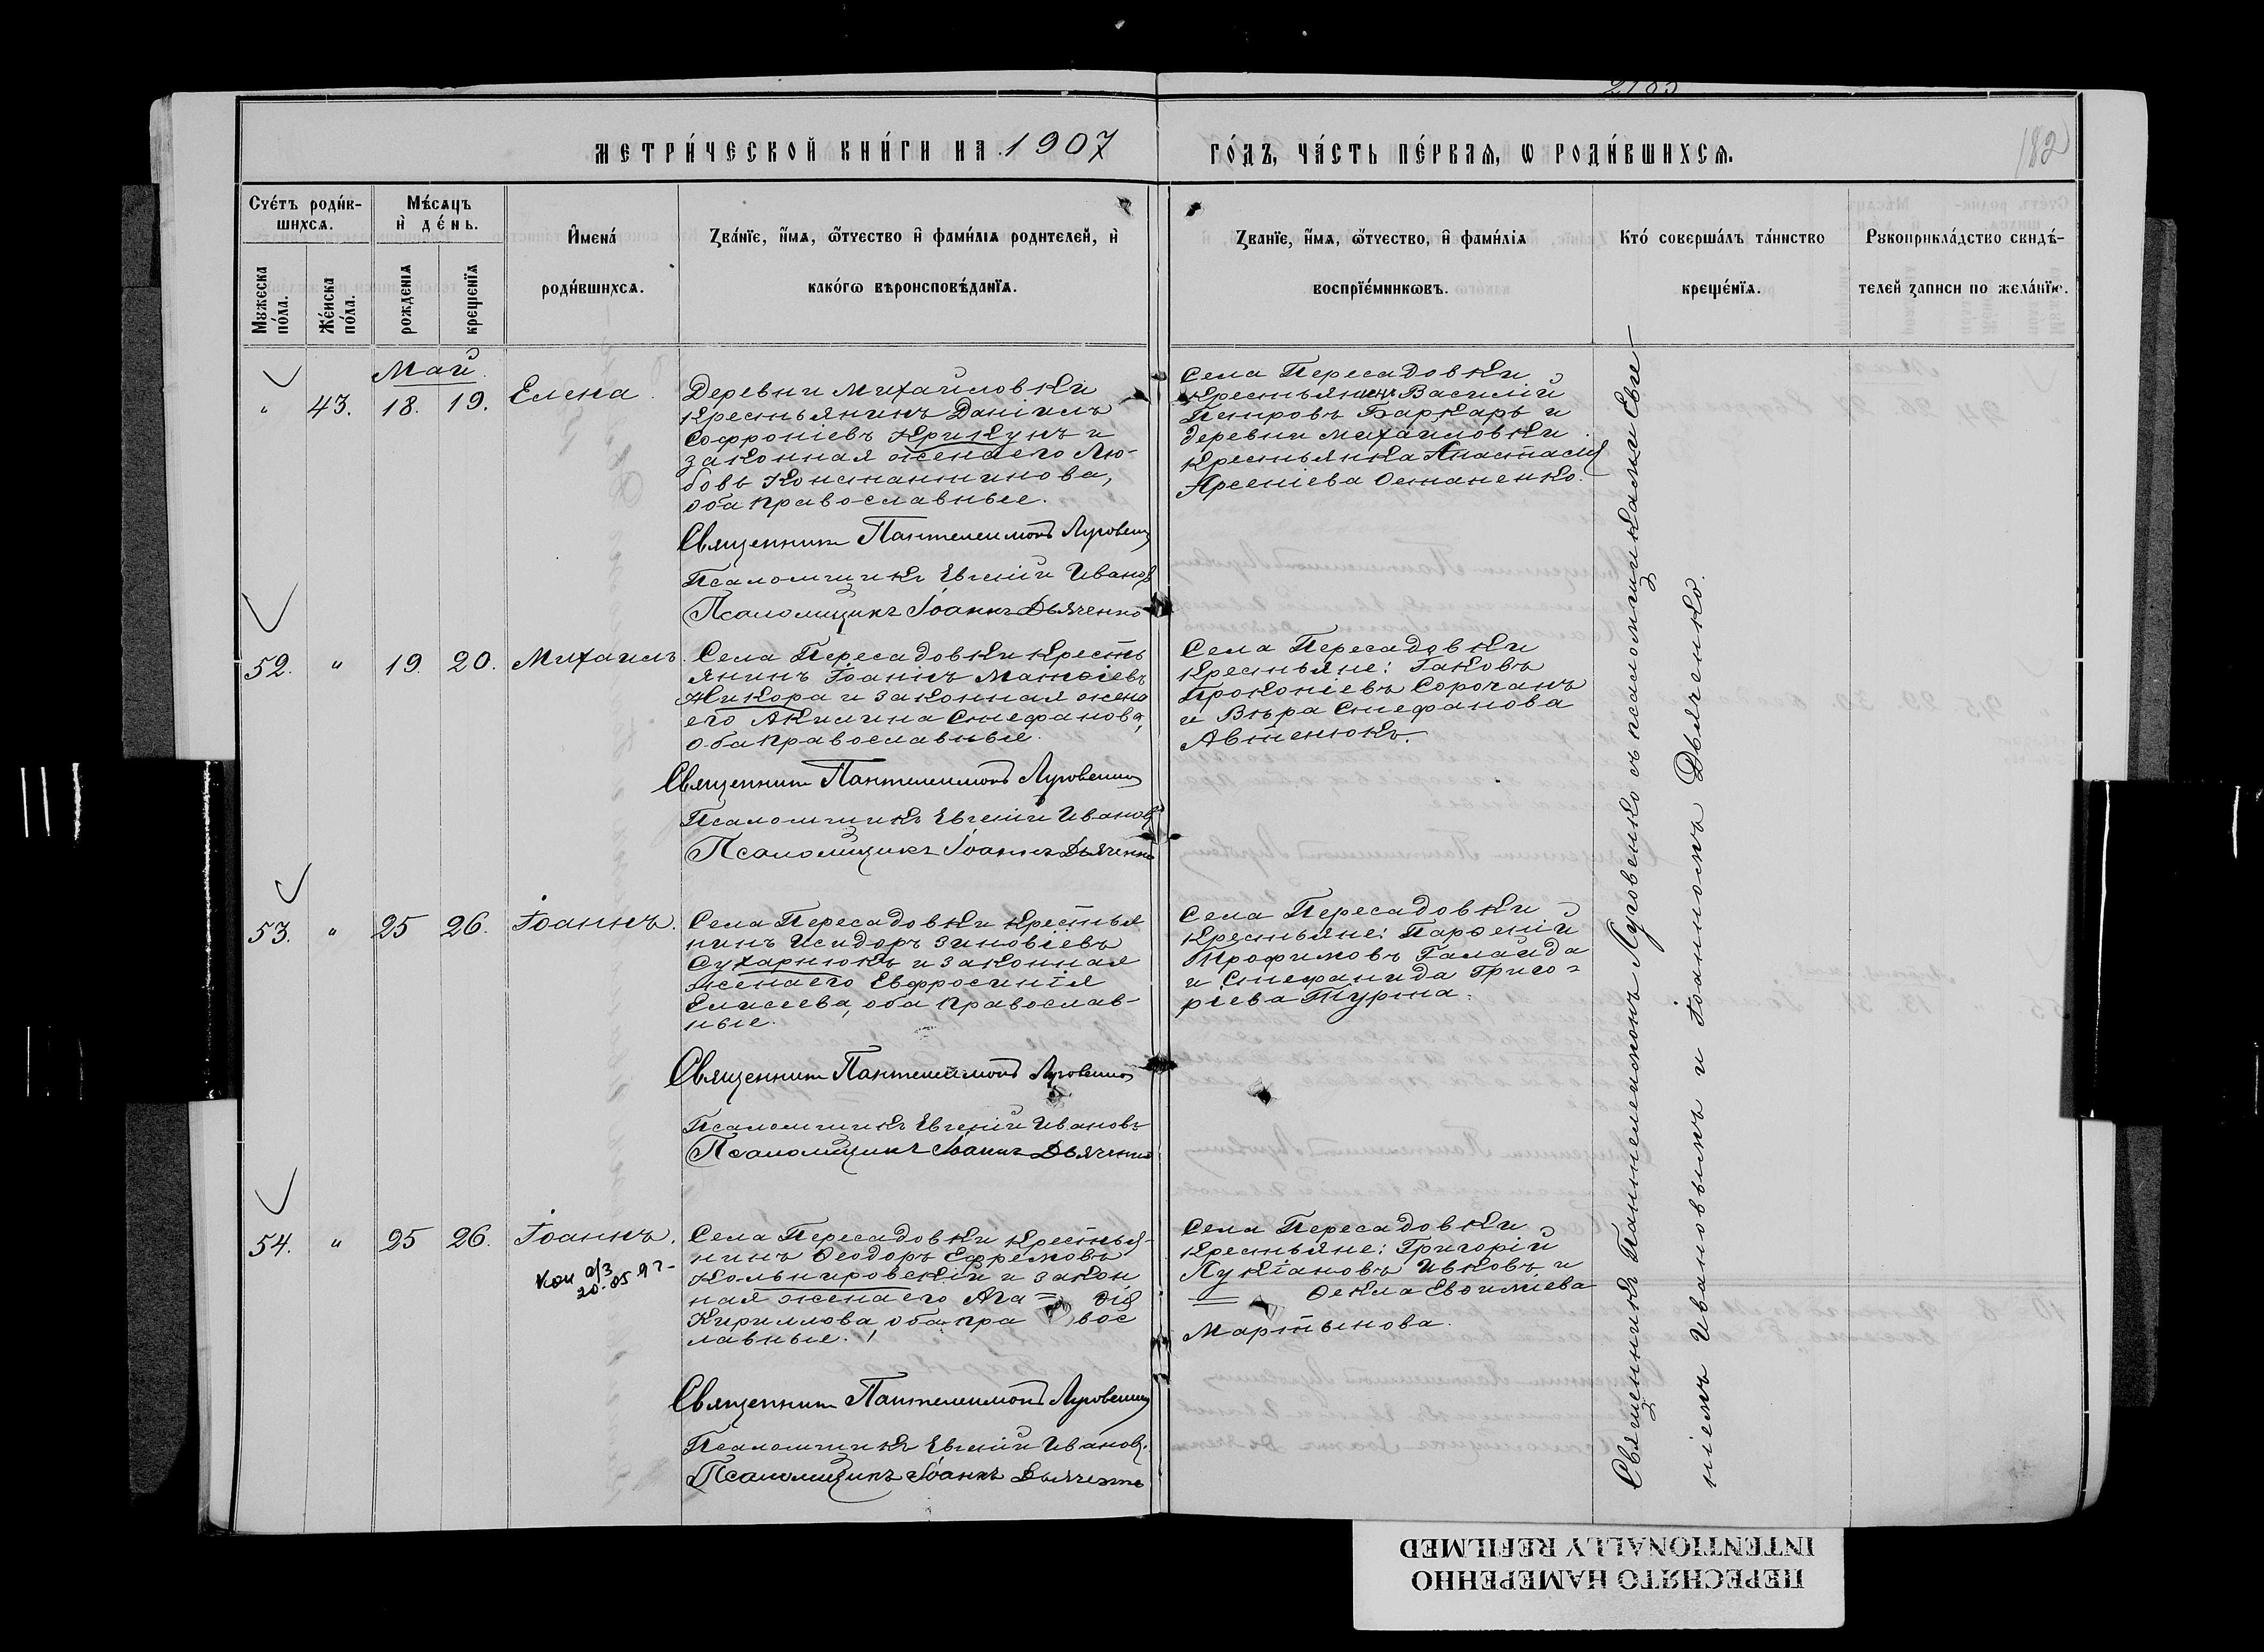 2185
МЕТРИ́ЧЕСКОЙ КНИ́ГИ НА 1907
ГО́ДЪ, ЧА́СТЬ ПЕ́РВАЯ, Ѡ РОДИ́ВШИХСЯ.
182
Счéтъ роди́в-
шихсѧ.
Мѣ́сѧцъ
и҆ де́нь.
Мꙋжеска
по́ла.
Же́нска
по́ла.
рожденїѧ
крещенїѧ
И҆мена́
роди́вшихсѧ.
Зва́нїе, и҆́мѧ, ѻ҆́тчество и҆ фами́лїѧ родителей, и҆
како́гѡ вѣроисповѣ́данїѧ.
Зва́нїе, и҆́мѧ, ѻ҆́тчество, и҆ фами́лїѧ
воспрїе́мникѡвъ.
Кто́ соверша́лъ та́инство
креще́нїѧ.
Рꙋкоприкла́дство свидѣ́-
телей записи по жела́нїю.
Май.
" 43. 18. 19. Елена.
Деревни Михайловки
крестьянинъ Даніилъ
Софроніевъ Крикунъ и
законная жена его Лю-
бовь Константинова,
оба православные.
Священникъ Пантелеимонъ Луговенко
Псаломщикъ Евгеній Ивановъ
Псаломщикъ Іоаннъ Дьяченко
Села Пересадовки
крестьянинъ Василій
Петровъ Баркаръ и
деревни Михайловки
крестьянка Анастасія
Арсеніева Остапенко.
52. " 19. 20. Михаилъ.
Села Пересадовки кресть
янинъ Іоаннъ Матѳіевъ
Жикора и законная жена
его Акилина Стефанова,
оба православные.
Священникъ Пантелеимонъ Луговенко
Псаломщикъ Евгеній Ивановъ
Псаломщикъ Іоаннъ Дьяченко
Села Пересадовки
крестьяне: Іаковъ
Прокопіевъ Сорочанъ
и Вѣра Стефанова
Автенюкъ.
53. " 25 26. Іоаннъ.
Села Пересадовки крестья
нинъ Исидоръ Зиновіевъ
Сухарнюкъ и законная
жена его Евфросинія
Елисеева, оба православ-
ные.
Священникъ Пантелеимонъ Луговенко
Псаломщикъ Евгеній Ивановъ
Псаломщикъ Іоаннъ Дьяченко
Села Пересадовки
крестьяне: Парѳеній
Трофимовъ Галайда
и Стефанида Григо-
ріева Турта.
54. " 25 26. Іоаннъ.
20.05.97
Села Пересадовки крестья-
нинъ Ѳеодоръ Ефремовъ
Кольнировскій и закон
ная жена его Ага= ѳія
Кириллова, оба пра вос
лавные.
Священникъ Пантелеимонъ Луговенко
Псаломщикъ Евгеній Ивановъ.
Псаломщикъ Іоаннъ Дьяченко
Села Пересадовки
крестьяне: Григорій
Лукіановъ Ивковъ и
Ѳекла Евѳиміева
Мартынова.
Священникъ Пантелеимонъ Луговенко съ псаломщиками Евге-
ніемъ Ивановымъ и Іоанномъ Дьяченко.
ПЕРЕСНЯТО НАМЕРЕННО
INTENTIONALLY REFILMED